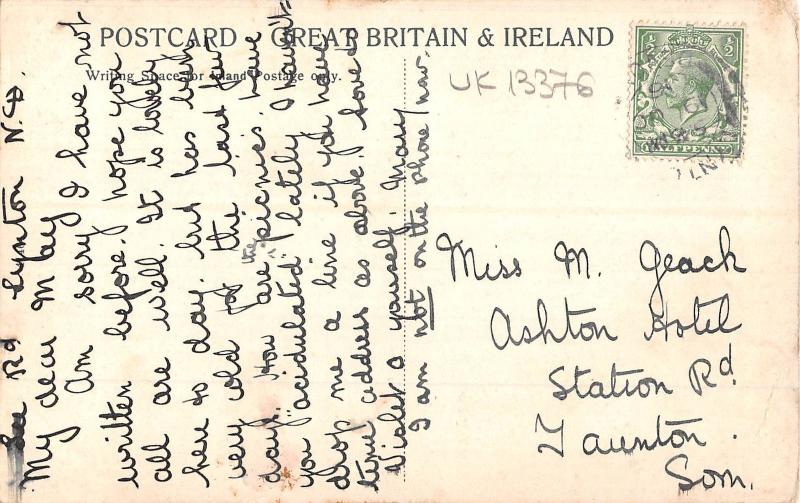 POSTCARD - GREAT BRITAIN & IRELAND
Writing Space for Inland Postage only.
UK 13376
½ ½
HALFPENNY
Lee Rd Lynton N.D.
My dear M
Am sorry I have not
written before. I hope you
all are well. It is lovely
here to day, but has been
very cold for the last few
days. How are the picnics. have
you "acidulated" lately. I have
drop me a line if you have
time address as above. Love to
Violet & yourself. Mary
I am not on the phone now.
Miss M. Geach
Ashton Hotel
Station Rd
Taunton.
Som.